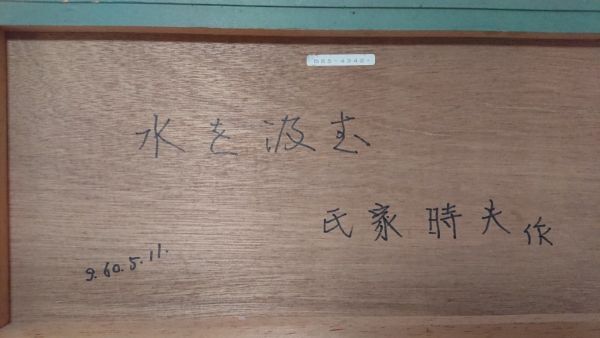 水を汲む
氏家時夫作
9.60.5.11.